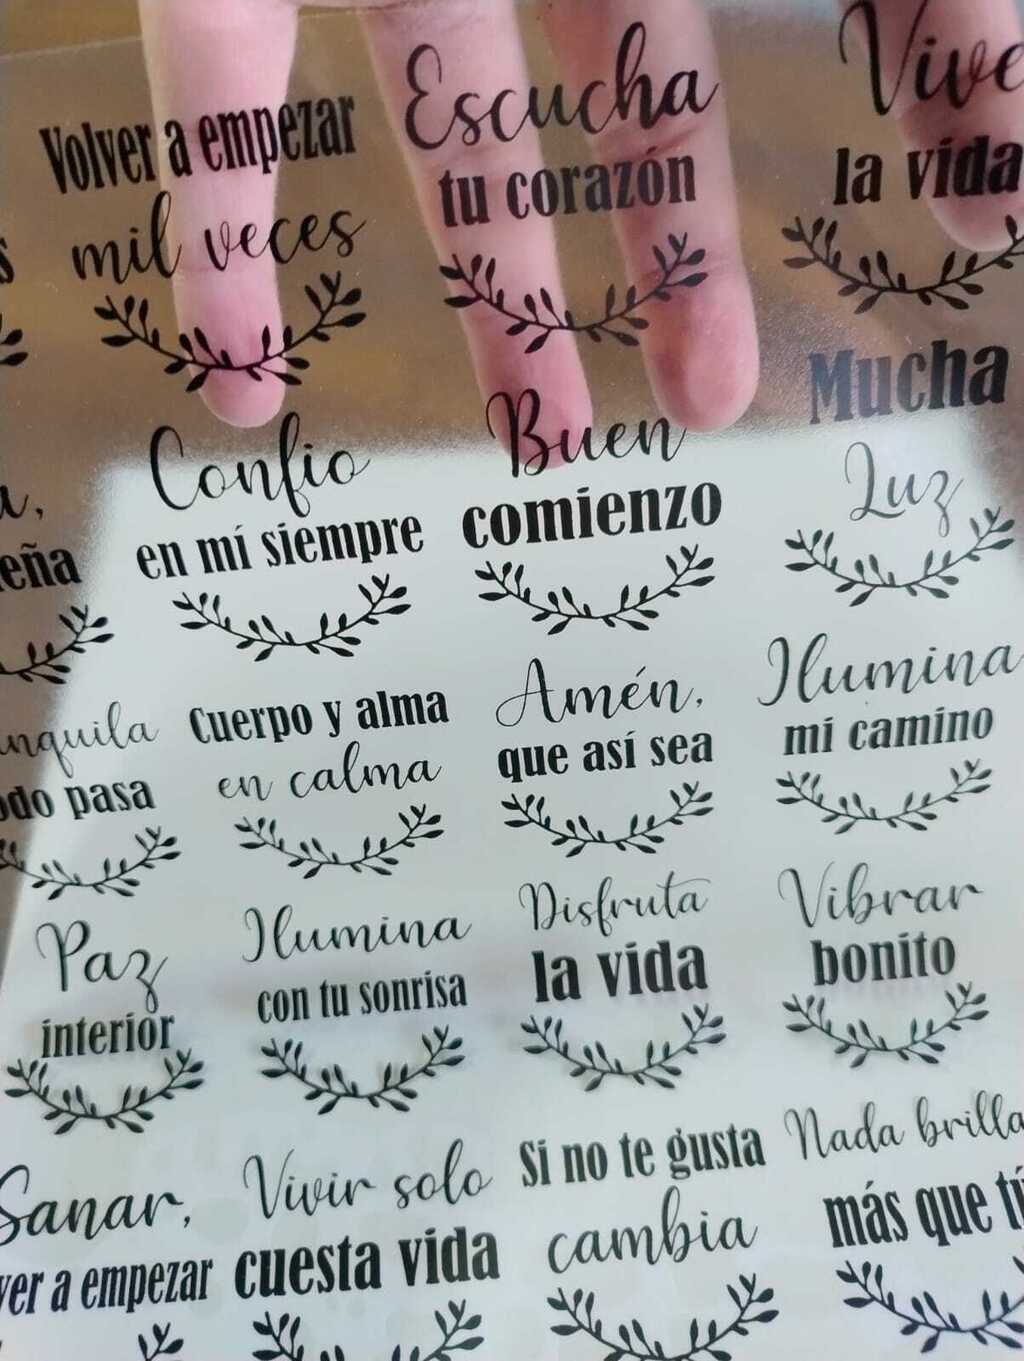 Volver a empezar
mil veces
Escucha
tu corazón
Vive
la vida
Confio
en mí siempre
Buen
comienzo
Mucha
Luz
Cuerpo y alma
en calma
Amén,
que así sea
Ilumina
mi camino
pasa
Paz
interior
Ilumina
con tu sonrisa
Disfruta
la vida
Vibrar
bonito
Sanar,
a empezar
Vivir solo
cuesta vida
Si no te gusta
cambia
Nada brilla
más que tú